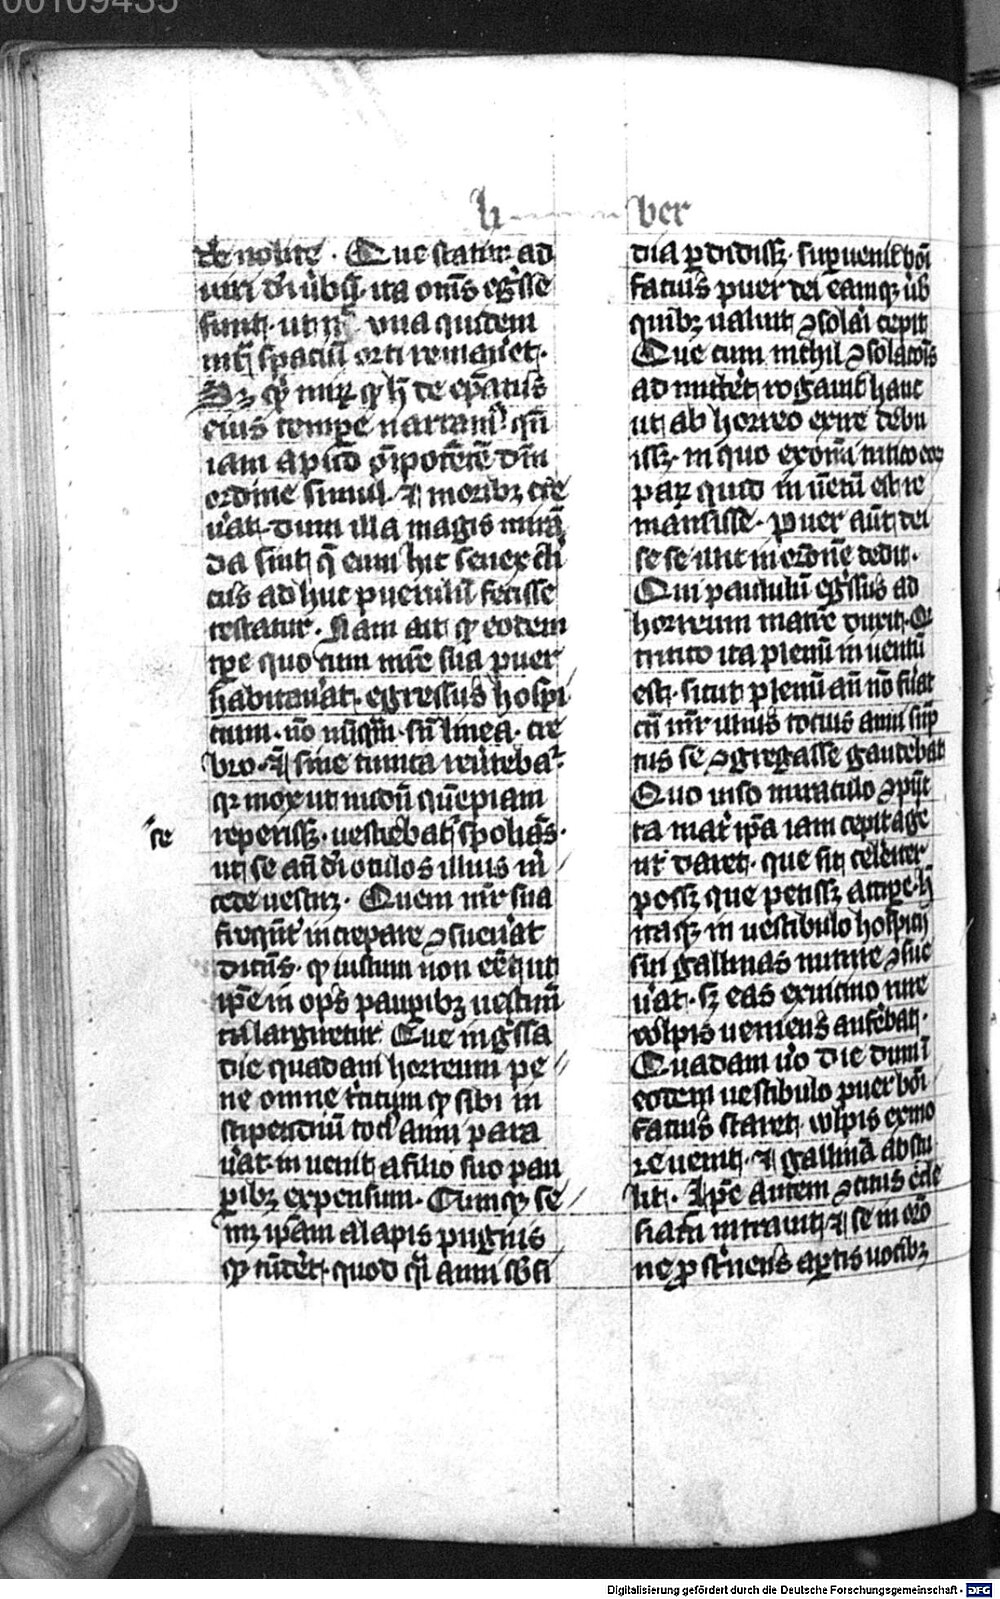 00109435
li ber
de nolite · Que statim ad
uiri dei uerbum · ita omnes egresse
sunt · ut nec una quidem
intra spacium orti remaneret ·
Sed quid mirum quod hec de episcopatus
eius tempore narramus quando
iam apud omnipotentem dominum
ordine simul · et moribus cre
uerat · dum illa magis miran
da sint que eum hic senex cleri
cus adhuc puerulum fecisse
testatur · Nam ait quod eodem
tempore quo cum matre sua puer
habitauerat · egressus hospi
cium · non nunquam sine linea · cre
bro · etiam sine tunica reuertebatur
quia mox ut nudum quempiam
reperisset · uestiebat spolians ·
se
ut se ante dei oculos illius mer
cede uestiret · Quem mater sua
frequenter increpare consueuerat
dicens · quod iustum non esset ut
ipse inops pauperibus uestimen
ta largiretur Que ingressa
die quadam horreum pe
ne omne triticum quod sibi in
stipendium tocius anni para
uerat · inuenit a filio suo pau
peribus expensum · Cumque se
met ipsam alapis pugnis
que tunderet · quod quasi anni subsi
dia perdidisset · superuenit boni
facius puer dei eamque uerbis
quibus ualuit consolari cepit
Que cum nichil consolacionis
ad mitteret rogauit hanc
ut ab horreo exire debu
isset · in quo ex omni tritico eor
parum quid inuentum est re
mansisse · Puer autem dei
sese ilic in oracionem dedit ·
Qui paululum egressus ad
horreum matrem duxit · Quod
tritico ita plenum inuentum
est · sicut plenum ante non fuerat
cum mater illius tocius anni sump
tus se congregasse gaudebat
Quo uiso miraculo conpunc
ta mater ipsa iam cepit age
ut daret · que sic celeriter
posset que petisset accipere · Hic
itaque in uestibulo hospicii
sui gallinas nutrire consue
uerat · sed eas ex uicino rure
wlpis ueniens auferebat ·
Quadam uero die dum in
eodem uestibulo puer boni
facius staret · wlpis ex mo
re uenit · et gallinam abstu
lit · Ipse autem concitus eccle
siam intrauit · et se in oracio
ne prosternens apertis uocibus
Digitalisierung gefördert durch die Deutsche Forschungsgemeinschaft - DFG